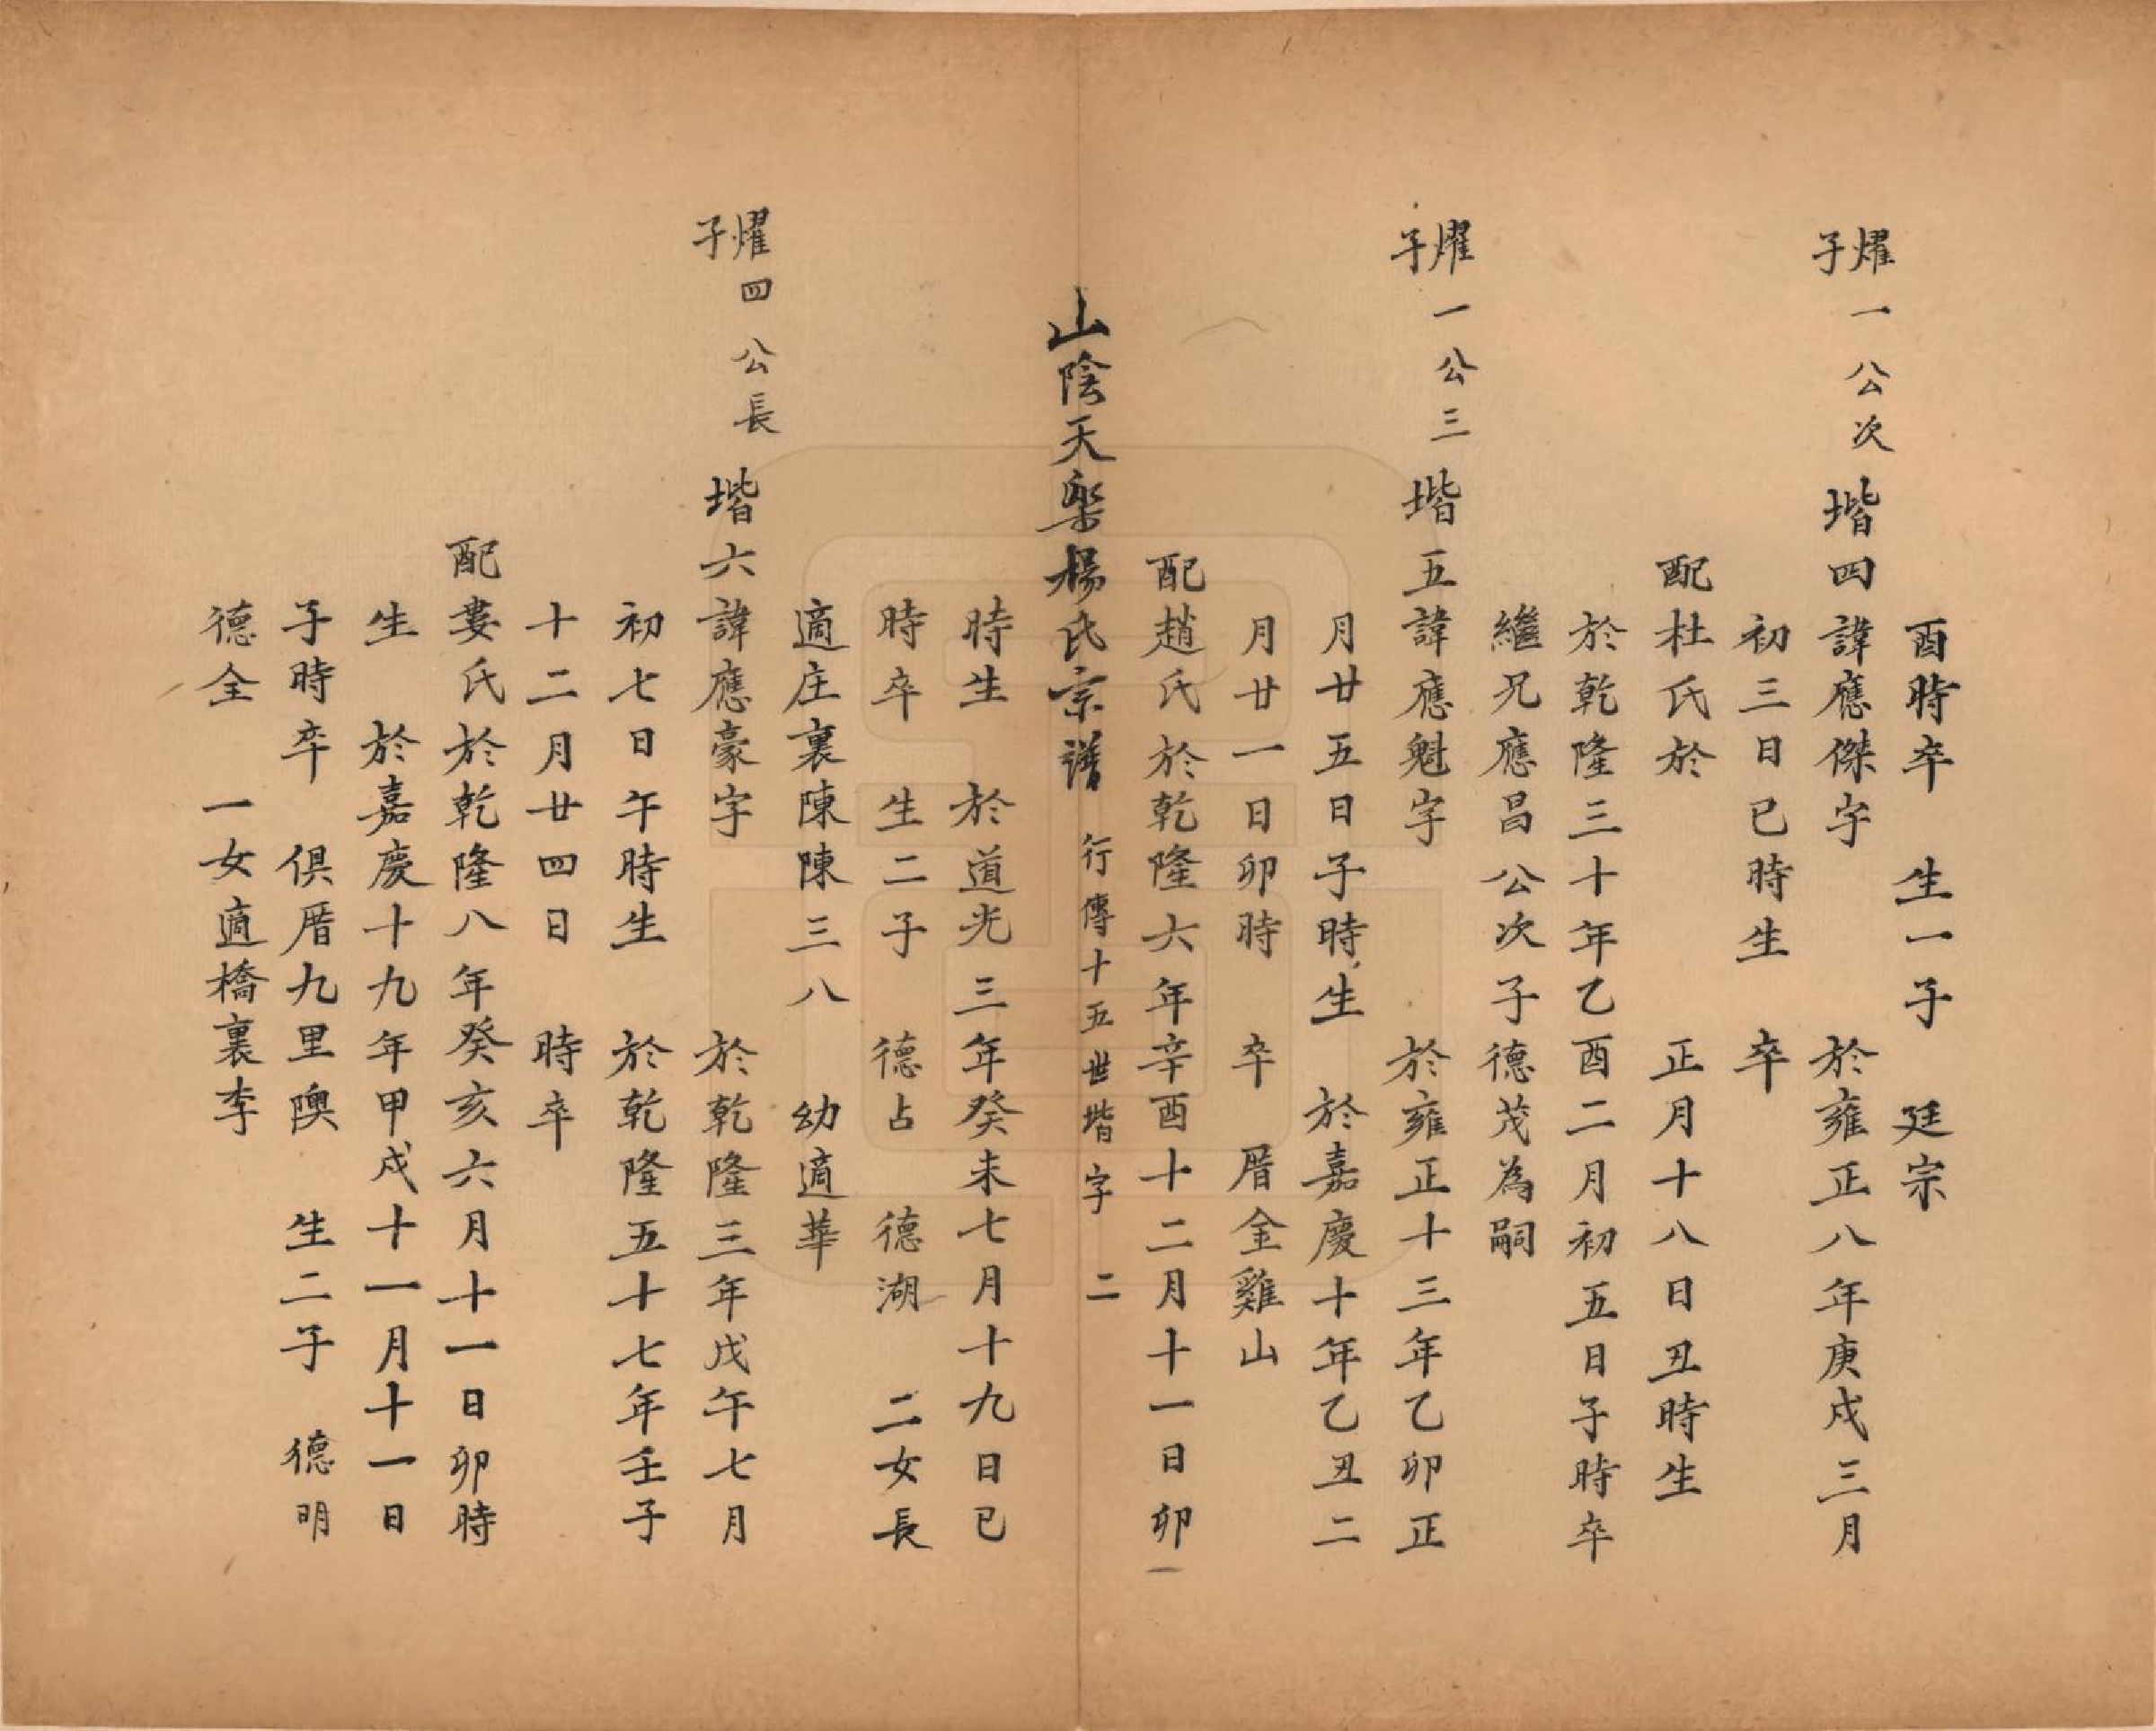 酉時卒　生一子　廷宗
燿一公次子　堦四諱應傑字　於雍正八年庚戌三月
初三日巳時生　卒
配杜氏於　正月十八日丑時生
於乾隆三十年乙酉二月初五日子時卒
繼兄應昌公次子德茂為嗣
燿一公三子　堦五諱應魁字　於雍正十三年乙卯正
月廿五日子時生　於嘉慶十年乙丑二
月廿一日卯時　卒　厝金雞山
配趙氏於乾隆六年辛酉十二月十一日卯
山陰天樂楊氏宗譜　行傳十五世堦字　二
時生　於道光三年癸未七月十九日巳
時卒　生二子　德占　德湖　二女長
適庄裏陳陳三八　幼適華
燿四公長子　堦六諱應豪字　於乾隆三年戊午七月
初七日午時生　於乾隆五十七年壬子
十二月廿四日　時卒
配婁氏於乾隆八年癸亥六月十一日卯時
生　於嘉慶十九年甲戌十一月十一日
子時卒　俱厝九里隩　生二子　德明
德全　一女適橋裏李